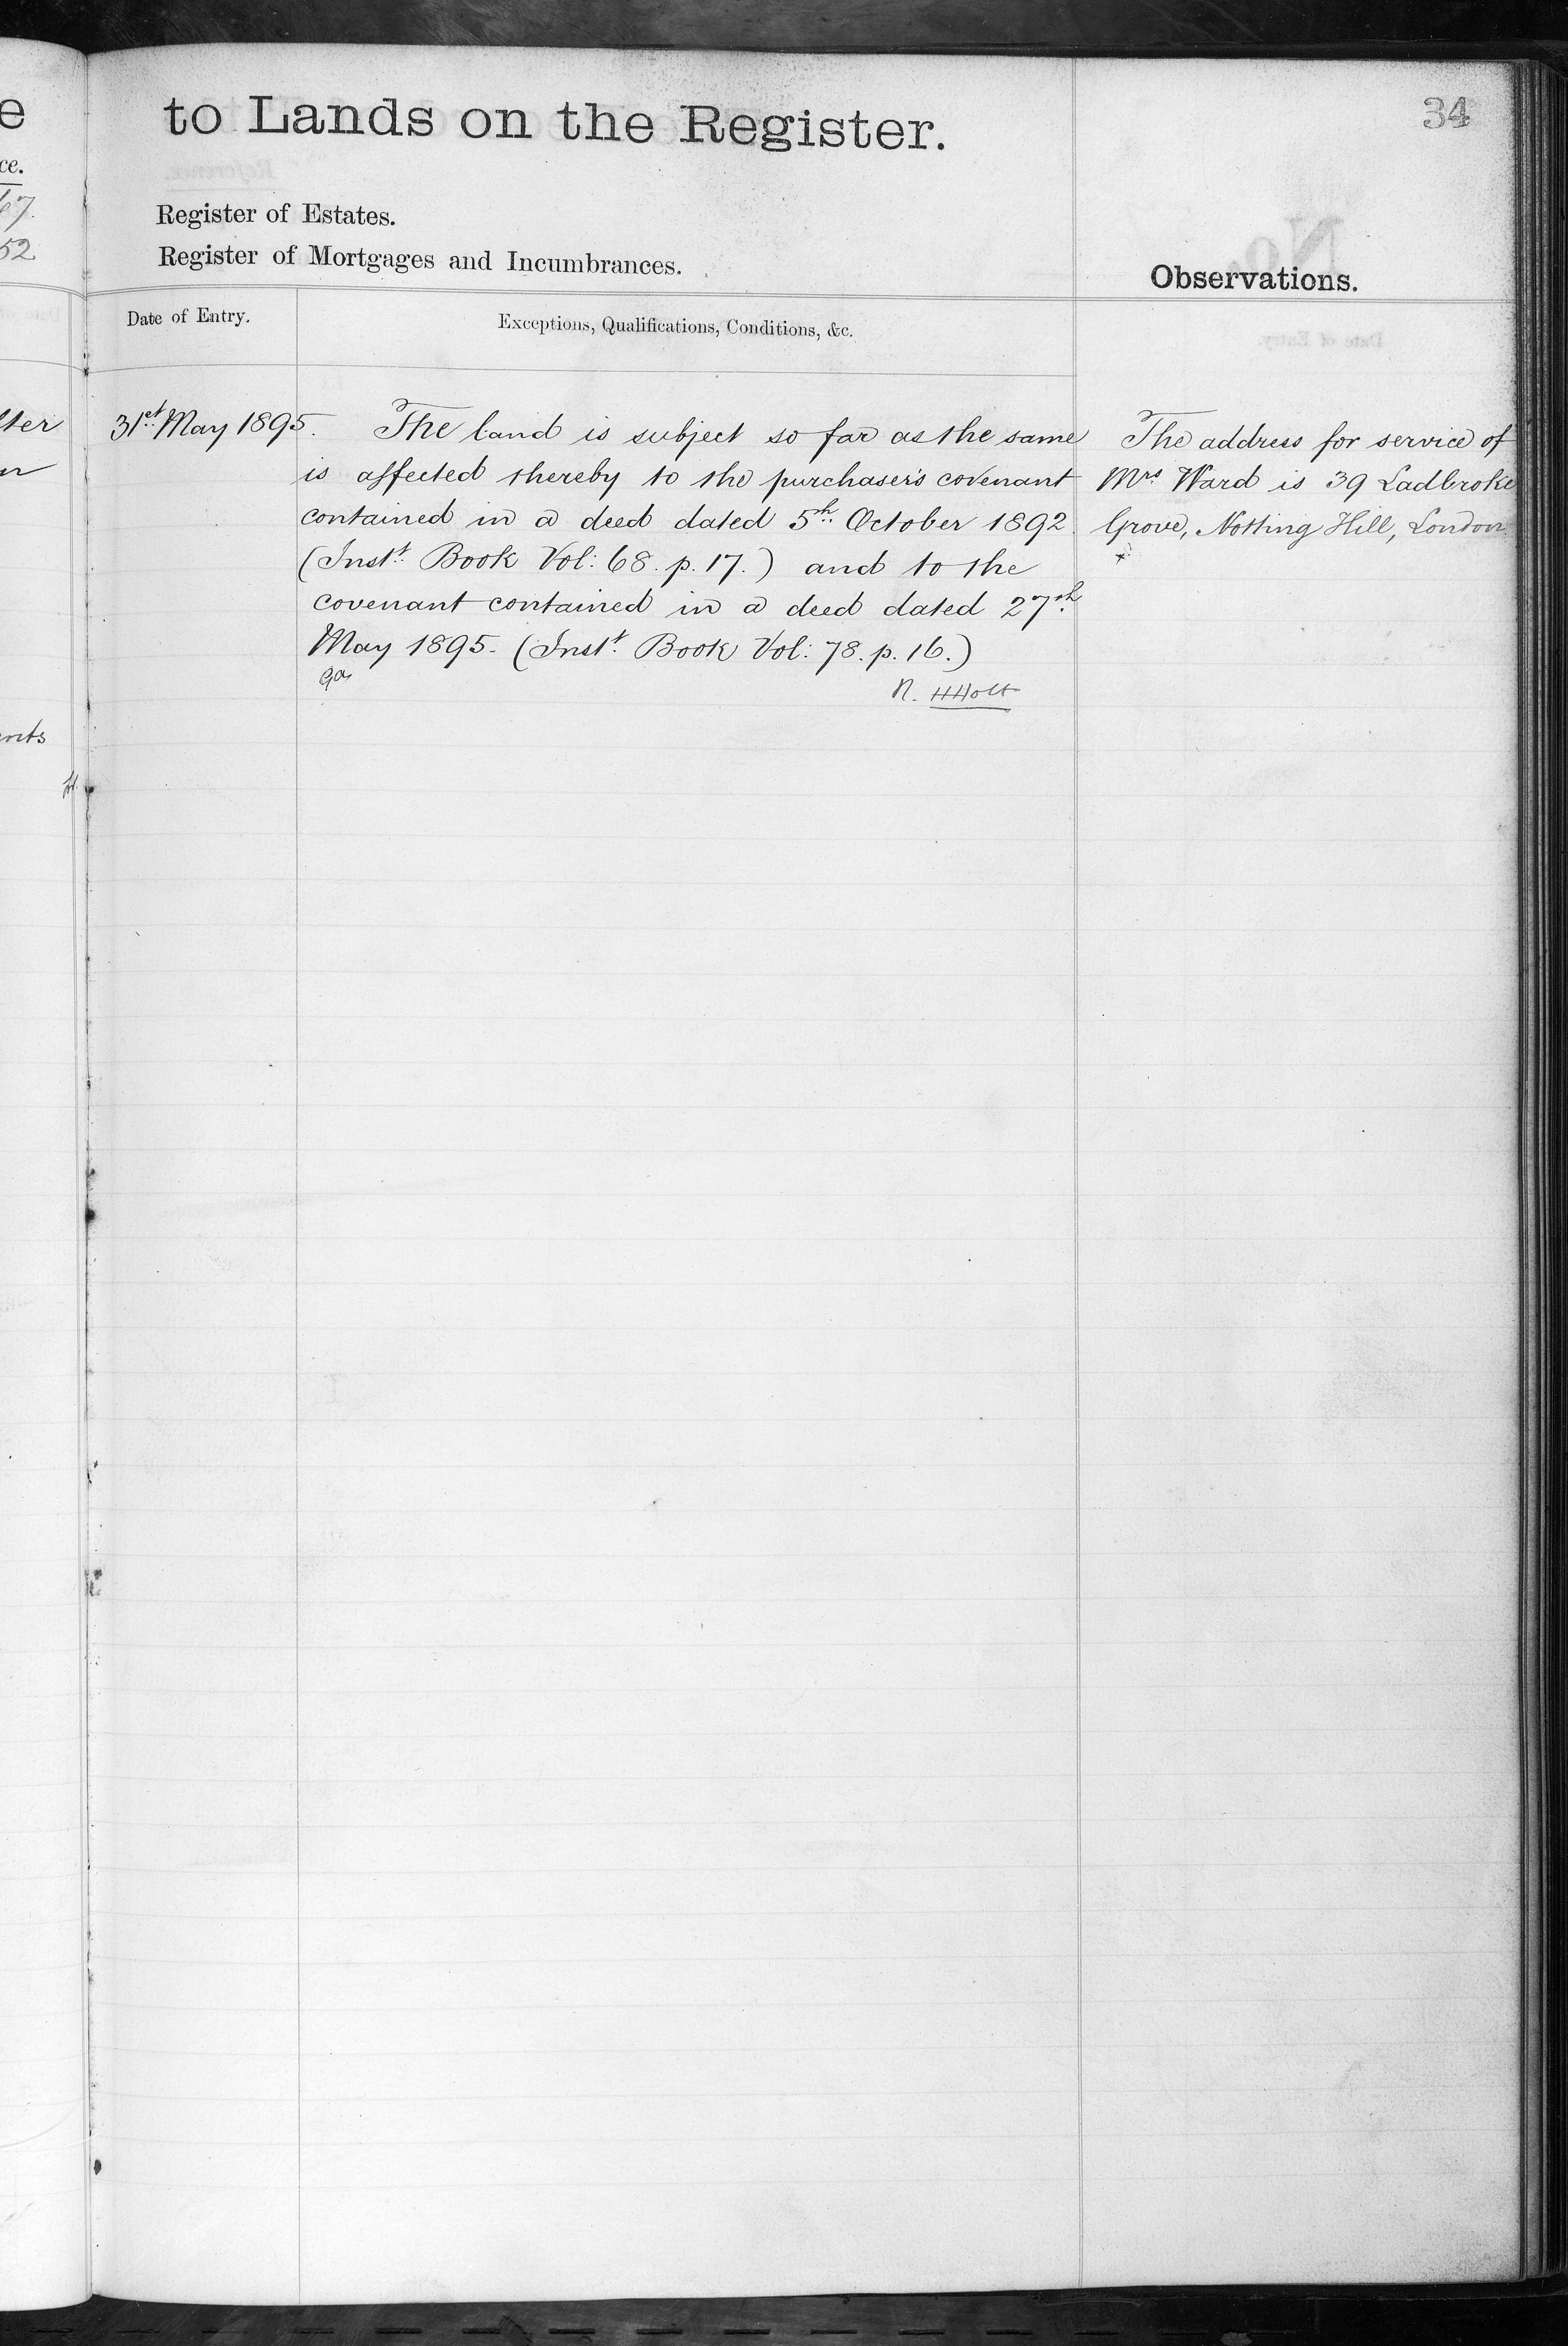 34
to Lands on the Register.
Register of Estates.
Register of Mortgages and Incumbrances.
Observations.
Date of Entry.
Exceptions, Qualifications, Conditions, &c.
31st May 1895.
The land is subject so far as the same
is affected thereby to the purchaser's covenant
contained in a deed dated 5th October 1892
(Instt Book Vol: 68. p. 17.) and to the
covenant contained in a deed dated 27th
May 1895. (Instt Book Vol: 78. p. 16.)
The address for service of
Mrs Ward is 39 Ladbroke
Grove, Notting Hill, London
ce.
67.
52